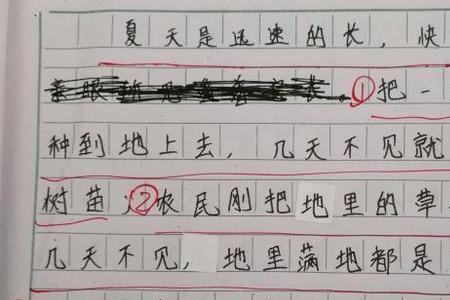 夏天是迅速的长，快
①把一
种到地上去，几天不见就
树苗②农民刚把地里的草
几天不见，地里满地都是